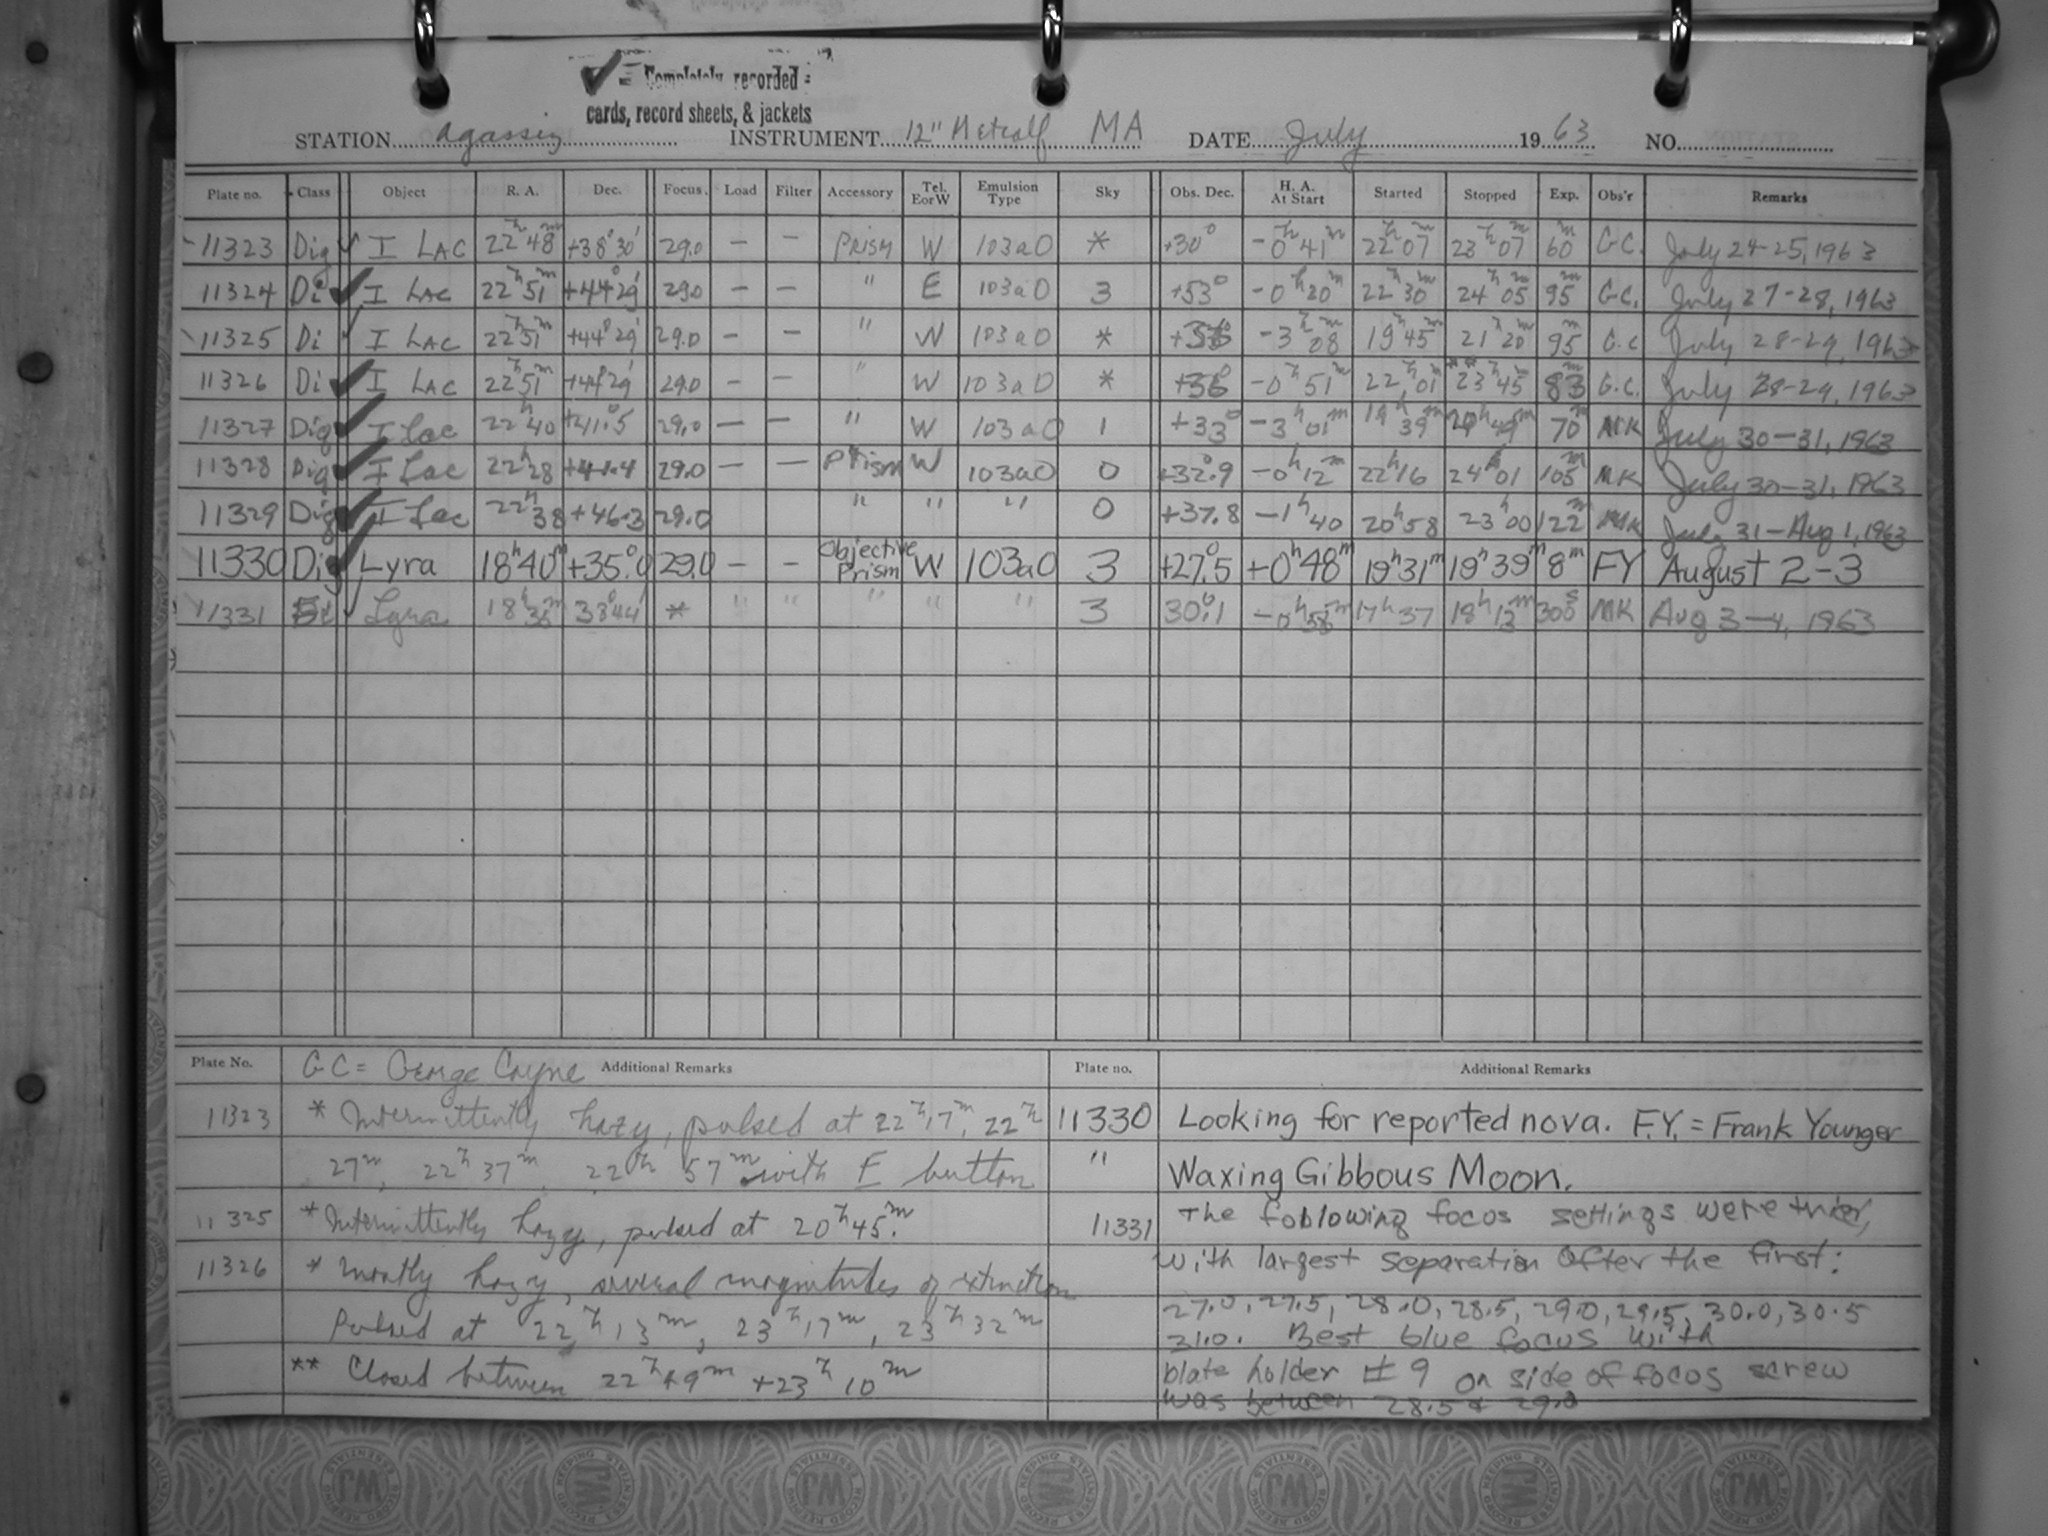 Completely recorded
cards, record sheets, & jackets
STATION Agassiz INSTRUMENT 12" Metcalf MA DATE July 1963 NO.
Plate no. Class Object R. A. Dec. Focus. Load Filter Accessory Tel. E or W Emulsion Type Sky Obs. Dec. H. A. At Start Started Stopped Exp. Obs'r Remarks
11323 Dig I LAC 22h 48m +38° 30' 29.0 — — Prism W 103aO * +30° -0h 41m 22h 07m 23h 07m 60m G.C. July 24-25, 1963
11324 Di I LAC 22h 51m +44° 29' 29.0 — — " E 103aO 3 +53° -0h 20m 22h 30m 24h 05m 95m G.C. July 27-28, 1963
11325 Di I LAC 22h 51m +44° 29' 29.0 — — " W 103aO * -3h 08m 19h 45m 21h 20m 95m G.C July 28-29, 1963
11326 Di I LAC 22h 51m +44° 29' 29.0 — — " W 103aO * +36° -0h 51m 22h 01m **23h 45m 83m G.C. July 28-29, 1963
11327 Dig I Lac 22h 40 +41°.5 29.0 — — " W 103aO 1 +33° -3h 01m 19h 39m 20h 49m 70m MK July 30-31, 1963
11328 Dig I Lac 22h 28 +41.4 29.0 — — Prism W 103aO 0 +32°.9 -0h 12m 22h 16 24h 01 105m MK July 30-31, 1963
11329 Dig I Lac 22h 38 +46.3 29.0 " " " 0 +37.8 -1h 40 20h 58 23h 00 122m MK July 31-Aug 1, 1963
11330 Dig Lyra 18h 40m +35°.0 29.0 — — Objective Prism W 103aO 3 +27°.5 +0h 48m 19h 31m 19h 39m 8m FY August 2-3
11331 Lyra 18h 36m 38° 44' * " " " " " 3 30°.1 -0h 58m 17h 37 18h 12m 300s MK Aug 3-4, 1963
Plate No. GC = George Coyne Additional Remarks Plate no. Additional Remarks
11323 * Intermittently hazy, pulsed at 22h 17m, 22h
27m, 22h 37m, 22h 57m with E button
11325 * Intermittently hazy, pulsed at 20h 45m.
11326 * Mostly hazy, several magnitudes of extinction
Pulsed at 22h 13m, 23h 17m, 23h 32m
** Closed between 22h 49m + 23h 10m
11330 Looking for reported nova. F.Y. = Frank Younger
" Waxing Gibbous Moon.
11331 The following focus settings were tried,
with largest separation after the first:
27.0, 27.5, 28.0, 28.5, 29.0, 29.5, 30.0, 30.5
31.0. Best blue focus with
plate holder # 9 on side of focus screw
was between 28.5 & 29.0